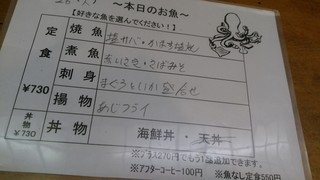 ～本日のお魚～
【好きな魚を選んでください！】
定食 ¥730
焼魚 塩サバ・かます塩焼
煮魚 さばみそ
刺身 まぐろといか盛合せ
揚物 あじフライ
丼物 ¥730 丼物 海鮮丼・天丼
※プラス270円でもう1品追加できます。
※アフターコーヒー100円 ※魚なし定食550円